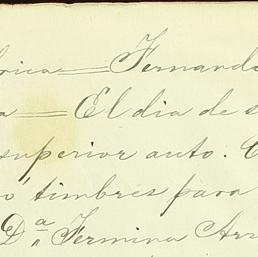 brica = Fernando
a = El dia de s
superior auto. C
ó timbres para
Dª Fermina Arr